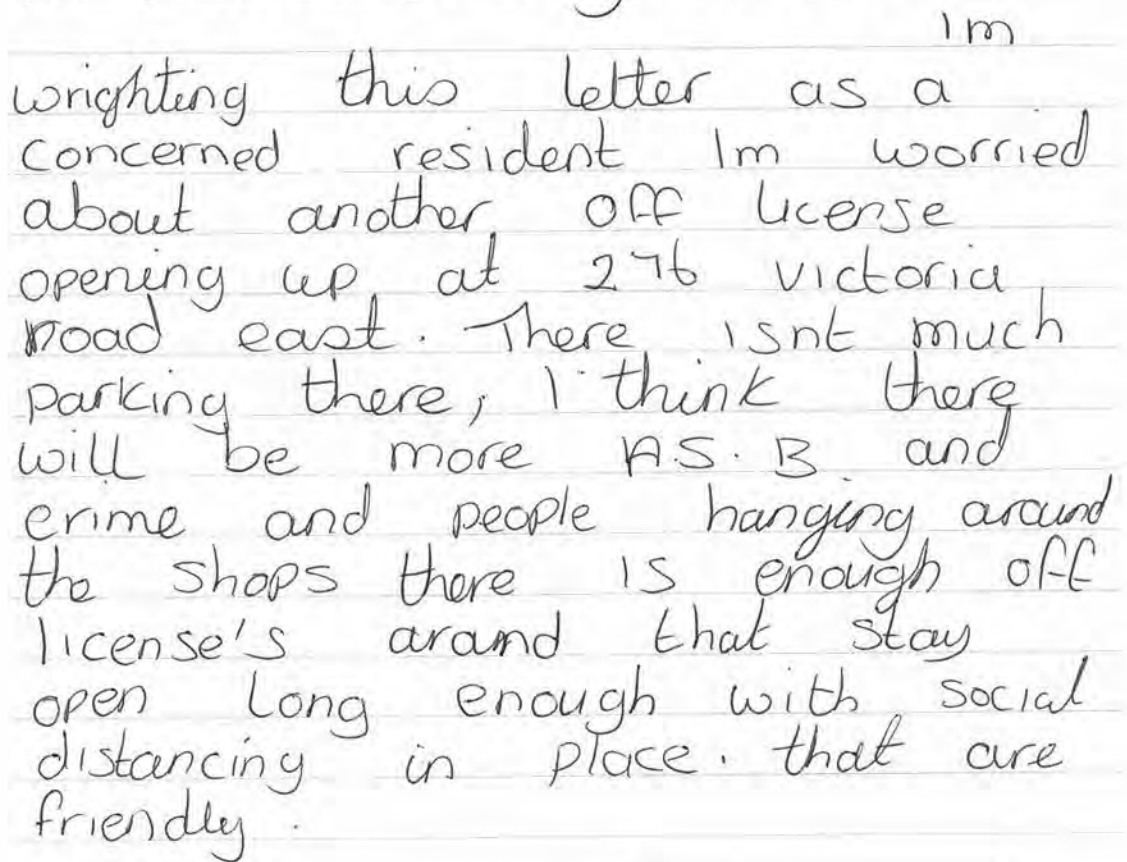 Im
wrighting this letter as a
concerned resident Im worried
about another off license
opening up at 276 victoria
road east. There isnt much
parking there, I think there
will be more A.S.B and
crime and people hanging around
the shops there is enough off
license's around that stay
open long enough with social
distancing in place. that are
friendly.